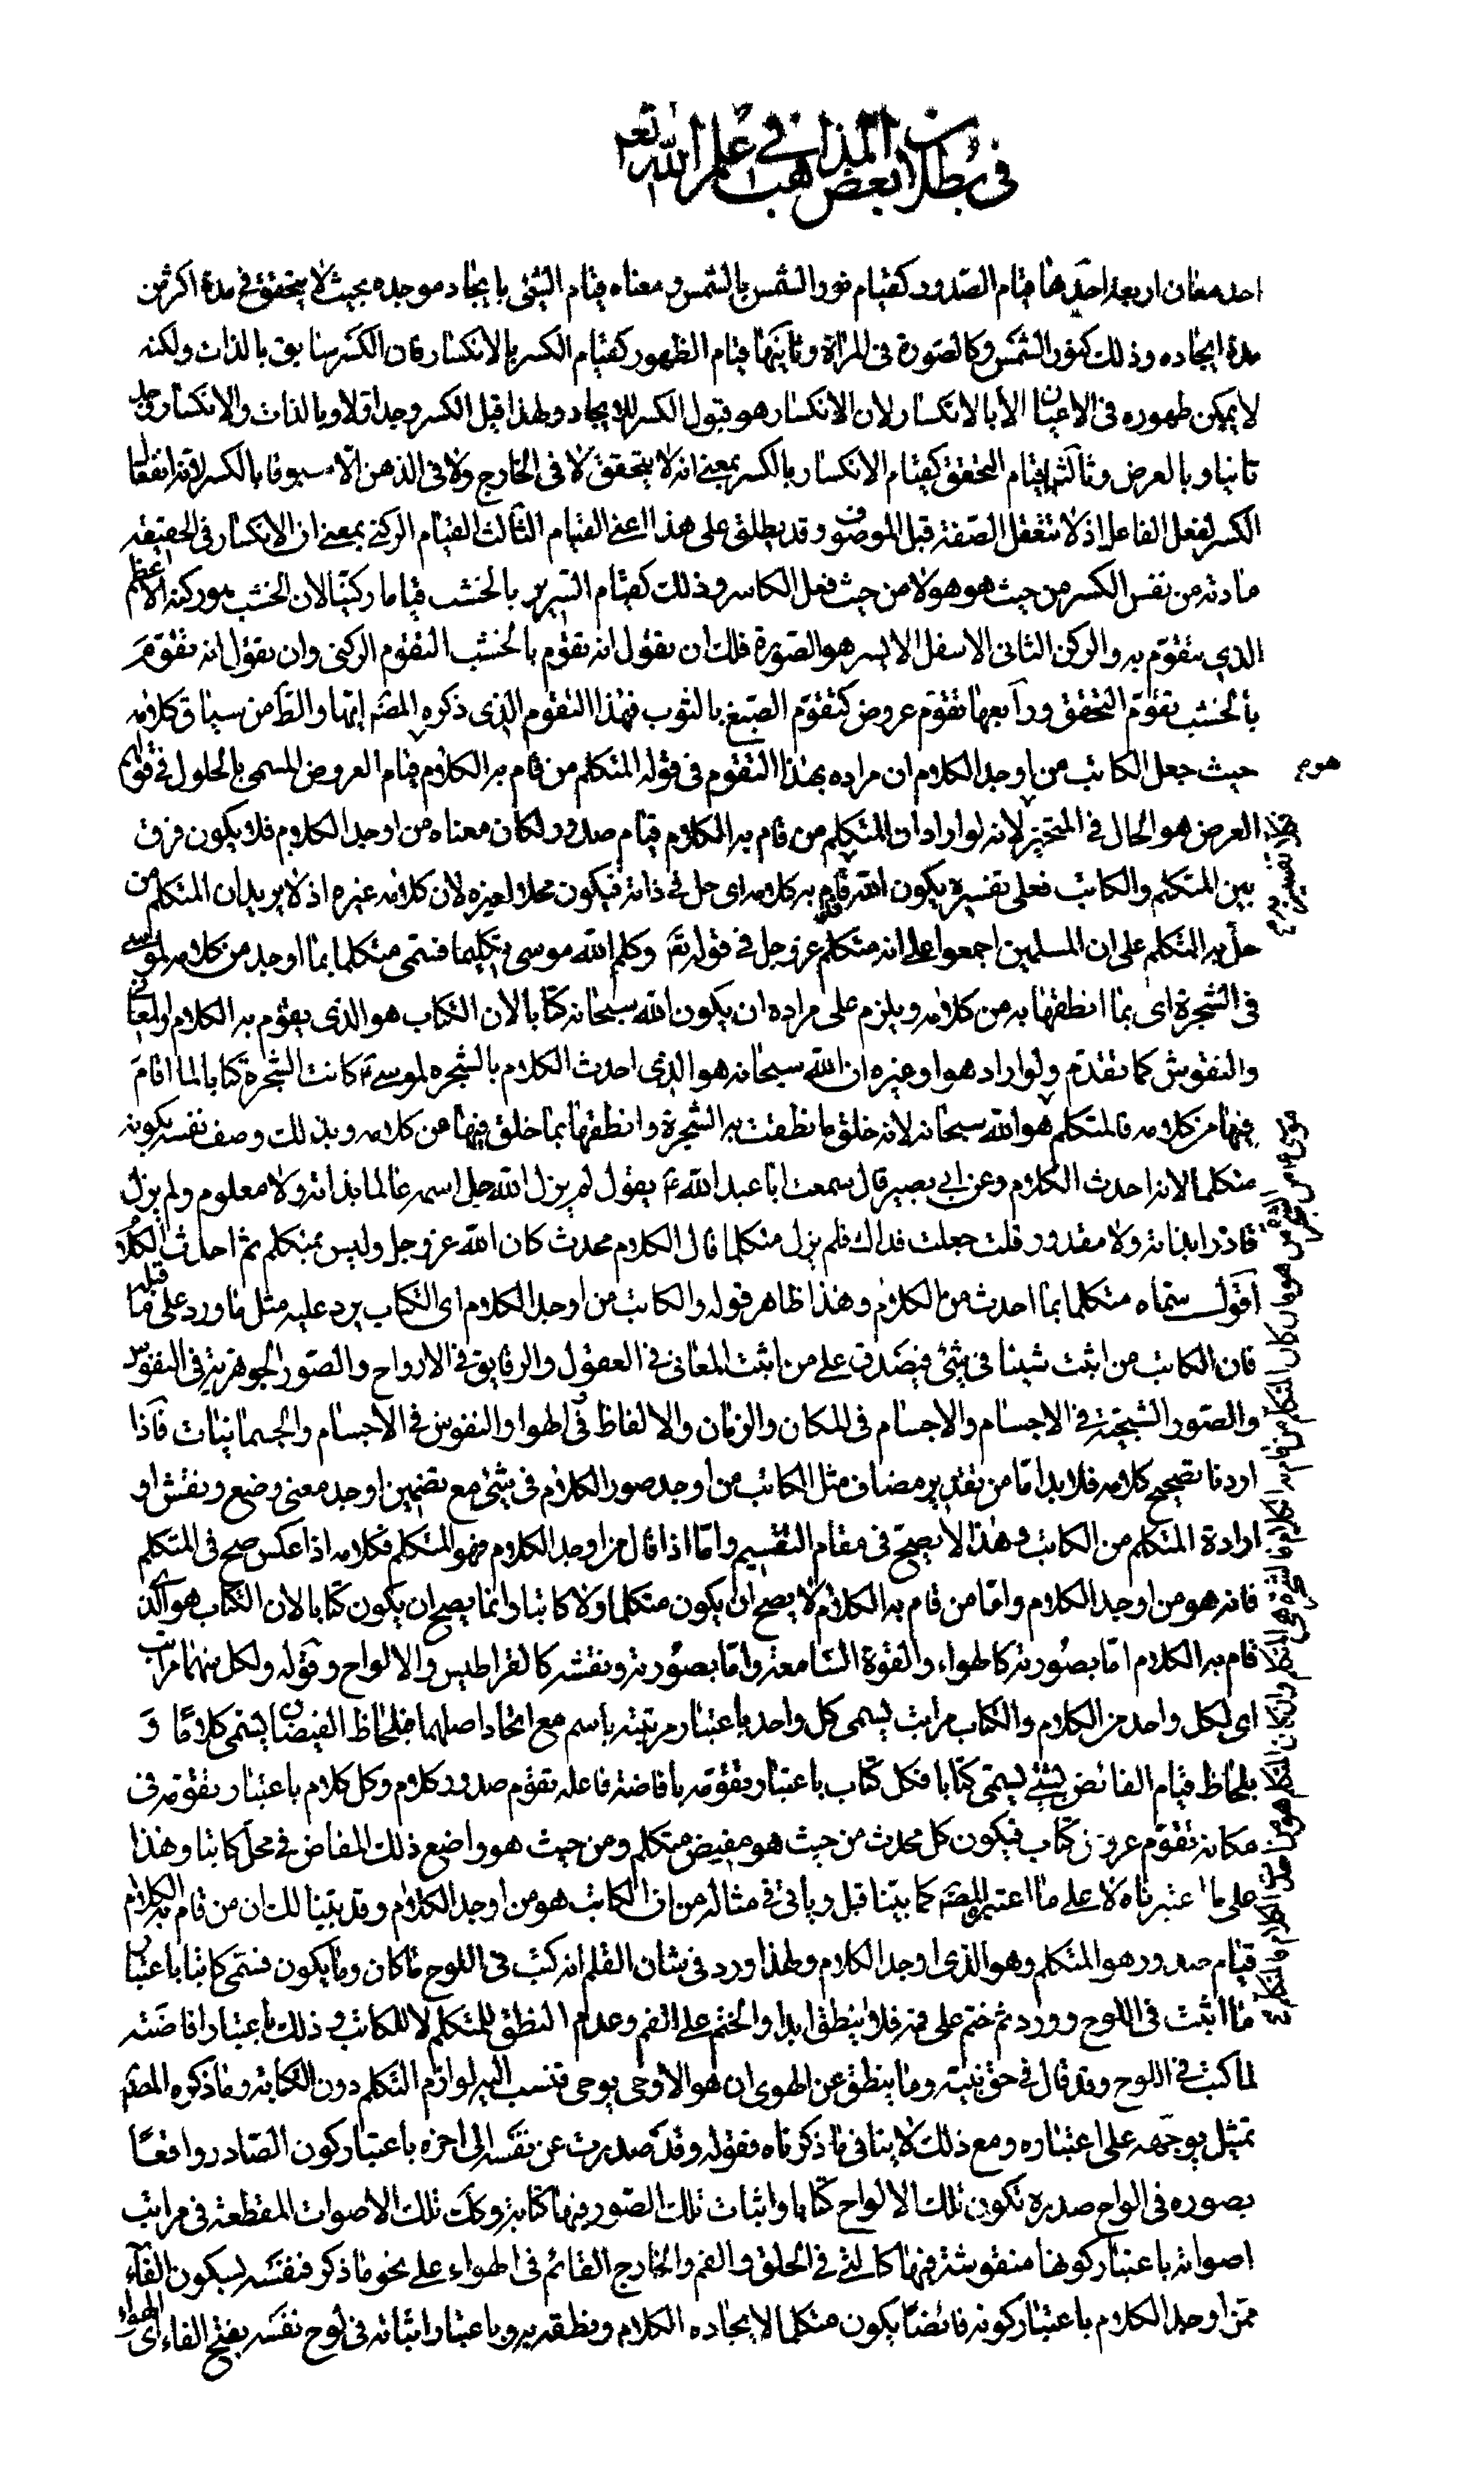 في بطلان بعض المذاهب في علم الله تع
احد معان اربعة احدها قيام الصدور كقيام نور الشمس بالشمس ومعناه قيام الشئ بايجاد موجده بحيث لا يتحقق في مدة اكثر من
مدة ايجاده وذلك كنور الشمس وكالصورة في المراة وثانيها قيام الظهور كقيام الكسر بالانكسار فان الكسر سابق بالذات ولكنه
لا يمكن ظهوره في الاعيان الا بالانكسار لان الانكسار هو قبول الكسر للايجاد ولهذا قيل الكسر وجد اولا وبالذات والانكسار وجد
ثانيا وبالعرض وثالثها قيام التحقق كقيام الانكسار بالكسر بمعنى انه لا يتحقق لا في الخارج ولا في الذهن الا مسبوقا بالكسر لانه انفعال
الكسر لفعل الفاعل اذ لا تتعقل الصفة قبل الموصوف وقد يطلق على هذا المعنى القيام الثالث القيام الركني بمعنى ان الانكسار في الحقيقة
مادته من نفس الكسر من حيث هو هو لا من حيث فعل الكاسر وذلك كقيام السرير بالخشب قياما ركنيا لان الخشب هو ركنه الاعظم
الذي يتقوم به والركن الثاني الاسفل الايسر هو الصورة فلك ان تقول انه تقوم بالخشب التقوم الركني وان تقول انه تقوم
بالخشب تقوم التحقق ورابعها تقوم عروض كتقوم الصبغ بالثوب فهذا التقوم الذي ذكره المصَ ايها والظَ من سياق كلامه
حيث جعل الكاتب من اوجد الكلام ان مراده بهذا التقوم في قوله المتكلم من قام به الكلام قيام العروض المسمى بالحلول في قولهم
العرض هو الحال في المتحيز لانه لو اراد ان المتكلم من قام به الكلام قيام صدور لكان معناه من اوجد الكلام فلا يكون فرق
بين المتكلم والكاتب فعلى تفسيره يكون الله قام به كلامه اي حل في ذاته فيكون محلا لغيره لان كلامه غيره اذ لا يريد ان المتكلم من
حل به المتكلم على ان المسلمين اجمعوا على انه متكلم عز وجل في قوله تع وكلم الله موسى تكليما فتسمى متكلما بما اوجد من كلامه لموسى
في الشجرة اي بما انطقها به من كلامه ويلزم على مراده ان يكون الله سبحانه كتابا لان الكتاب هو الذي يقوم به الكلام والمعاني
والنقوش كما تقدم ولو اراد هو او غيره ان الله سبحانه هو الذي احدث الكلام بالشجره لموسى ع كانت الشجرة كتابا لما اقام
فيها من كلامه فالمتكلم هو الله سبحانه لانه خلق ما نطقت به الشجرة وانطقها بما خلق فيها من كلامه وبذلك وصف نفسه بكونه
متكلما لانه احدث الكلام وعن ابي بصير قال سمعت ابا عبد الله ع يقول لم يزل الله جل اسمه عالما بذاته ولا معلوم ولم يزل
قادرا بذاته ولا مقدور قلت جعلت فداك فلم يزل متكلما قال الكلام محدث كان الله عز وجل وليس بمتكلم ثم احدث الكلام
اقول سماه متكلما بما احدث من الكلام وهذا ظاهر قوله والكاتب من اوجد الكلام اي الكتاب يرد عليه مثل ما ورد على ما قبله
فان الكاتب من اثبت شيئا في شئ فيصدق على من اثبت المعاني في العقول والرقايق في الارواح والصور الجوهرية في النفوس
والصور الشبحية في الاجسام والاجسام في المكان والزمان والالفاظ في الهوا والنقوش في الاجسام والجسمانيات فاذا
اردنا تصحيح كلامه فلا بد اما من تقدير مضاف مثل الكاتب من اوجد صور الكلام في شئ مع تضمين اوجد معنى وضع ونقش او
ارادة المتكلم من الكاتب وهذا لا يصح في مقام التقسيم واما اذا قال من اوجد الكلام فهو المتكلم فكلامه اذا عكس صح في المتكلم
فانه هو من اوجد الكلام واما من قام به الكلام لا يصح ان يكون متكلما ولا كاتبا وانما يصح ان يكون كتابا لان الكتاب هو الذي
قام به الكلام اما بصورته كالهواء والقوة السامعة واما بصورته ونقشه كالقراطيس والالواح وقوله ولكل منهما مراتب
اي لكل واحد من الكلام والكتاب مراتب يسمى كل واحد باعتبار مرتبته باسم مع اتحاد اصلهما فبلحاظ الفيضان يسمى كلاما و
بلحاظ قيام الفائض بشئ يسمى كتابا فكل كتاب باعتبار تقومه بافاضة فاعله تقوم صدور كلام وكل كلام باعتبار تقومه في
مكانه تقوم عروض كتاب فيكون كل محدث من حيث هو مفيض متكلم ومن حيث هو واضع ذلك المفاض في محل كاتبا وهذا
على ما اعتبرناه لا على ما اعتبره المصَ كما بينا قبل وياتي في مثاله من ان الكاتب هو من اوجد الكلام وقد بينا لك ان من قام به الكلام
قيام صدور هو المتكلم وهو الذي اوجد الكلام ولهذا ورد في شان القلم انه كتب في اللوح ما كان وما يكون فسمى كاتبا باعتبار
ما اثبت في اللوح وورد ثم ختم على فمه فلا ينطق ابدا والختم على الفم وعدم النطق للمتكلم لا للكاتب وذلك باعتبار افاضته
لما كتب في اللوح وقد قال في حق نبيه وما ينطق عن الهوى ان هو الا وحي يوحى فنسب اليه لوازم التكلم دون الكتابة وما ذكره المصَ
تمثيل يوجهه على اعتباره ومع ذلك لا ينافي ما ذكرناه فقوله وقد صدرت عن نفسه الى اخره باعتبار كون الصادر واقعا
بصوره في الواح صدره تكون تلك الالواح كتابا واثبات تلك الصور فيها كتابة وكك تلك الاصوات المقطعة في مراتب
اصواته باعتبار كونها منقوشة فيها كالتي في الحلق والفم والخارج القائم في الهواء على نحو ما ذكر فنفسه بسكون الفاء
ممن اوجد الكلام باعتبار كونه فائضا يكون متكلما لايجاده الكلام ونطقه به وباعتبار اثباته في لوح نفسه بفتح الفاء اي الهواء